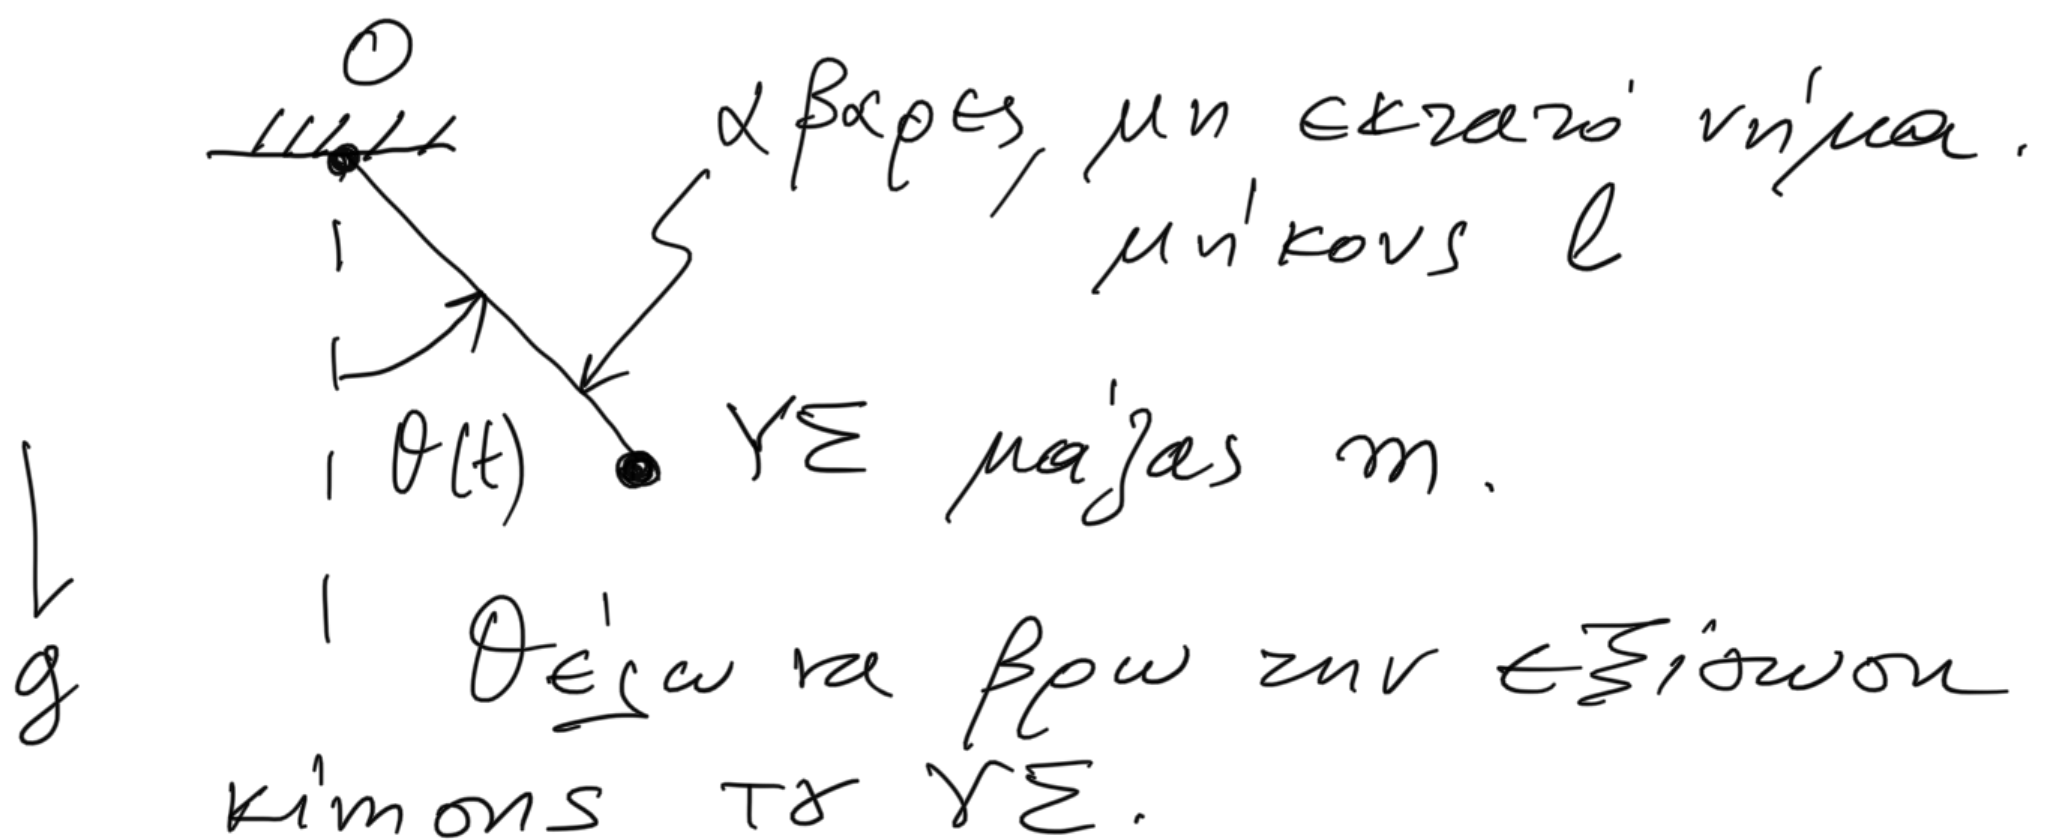 O
αβαρες, μη εκτατό νήμα.
μήκους l
θ(t) ΥΣ μάζας m.
g
Θέλω να βρω την εξίσωση
κίνησης τȣ ΥΣ.